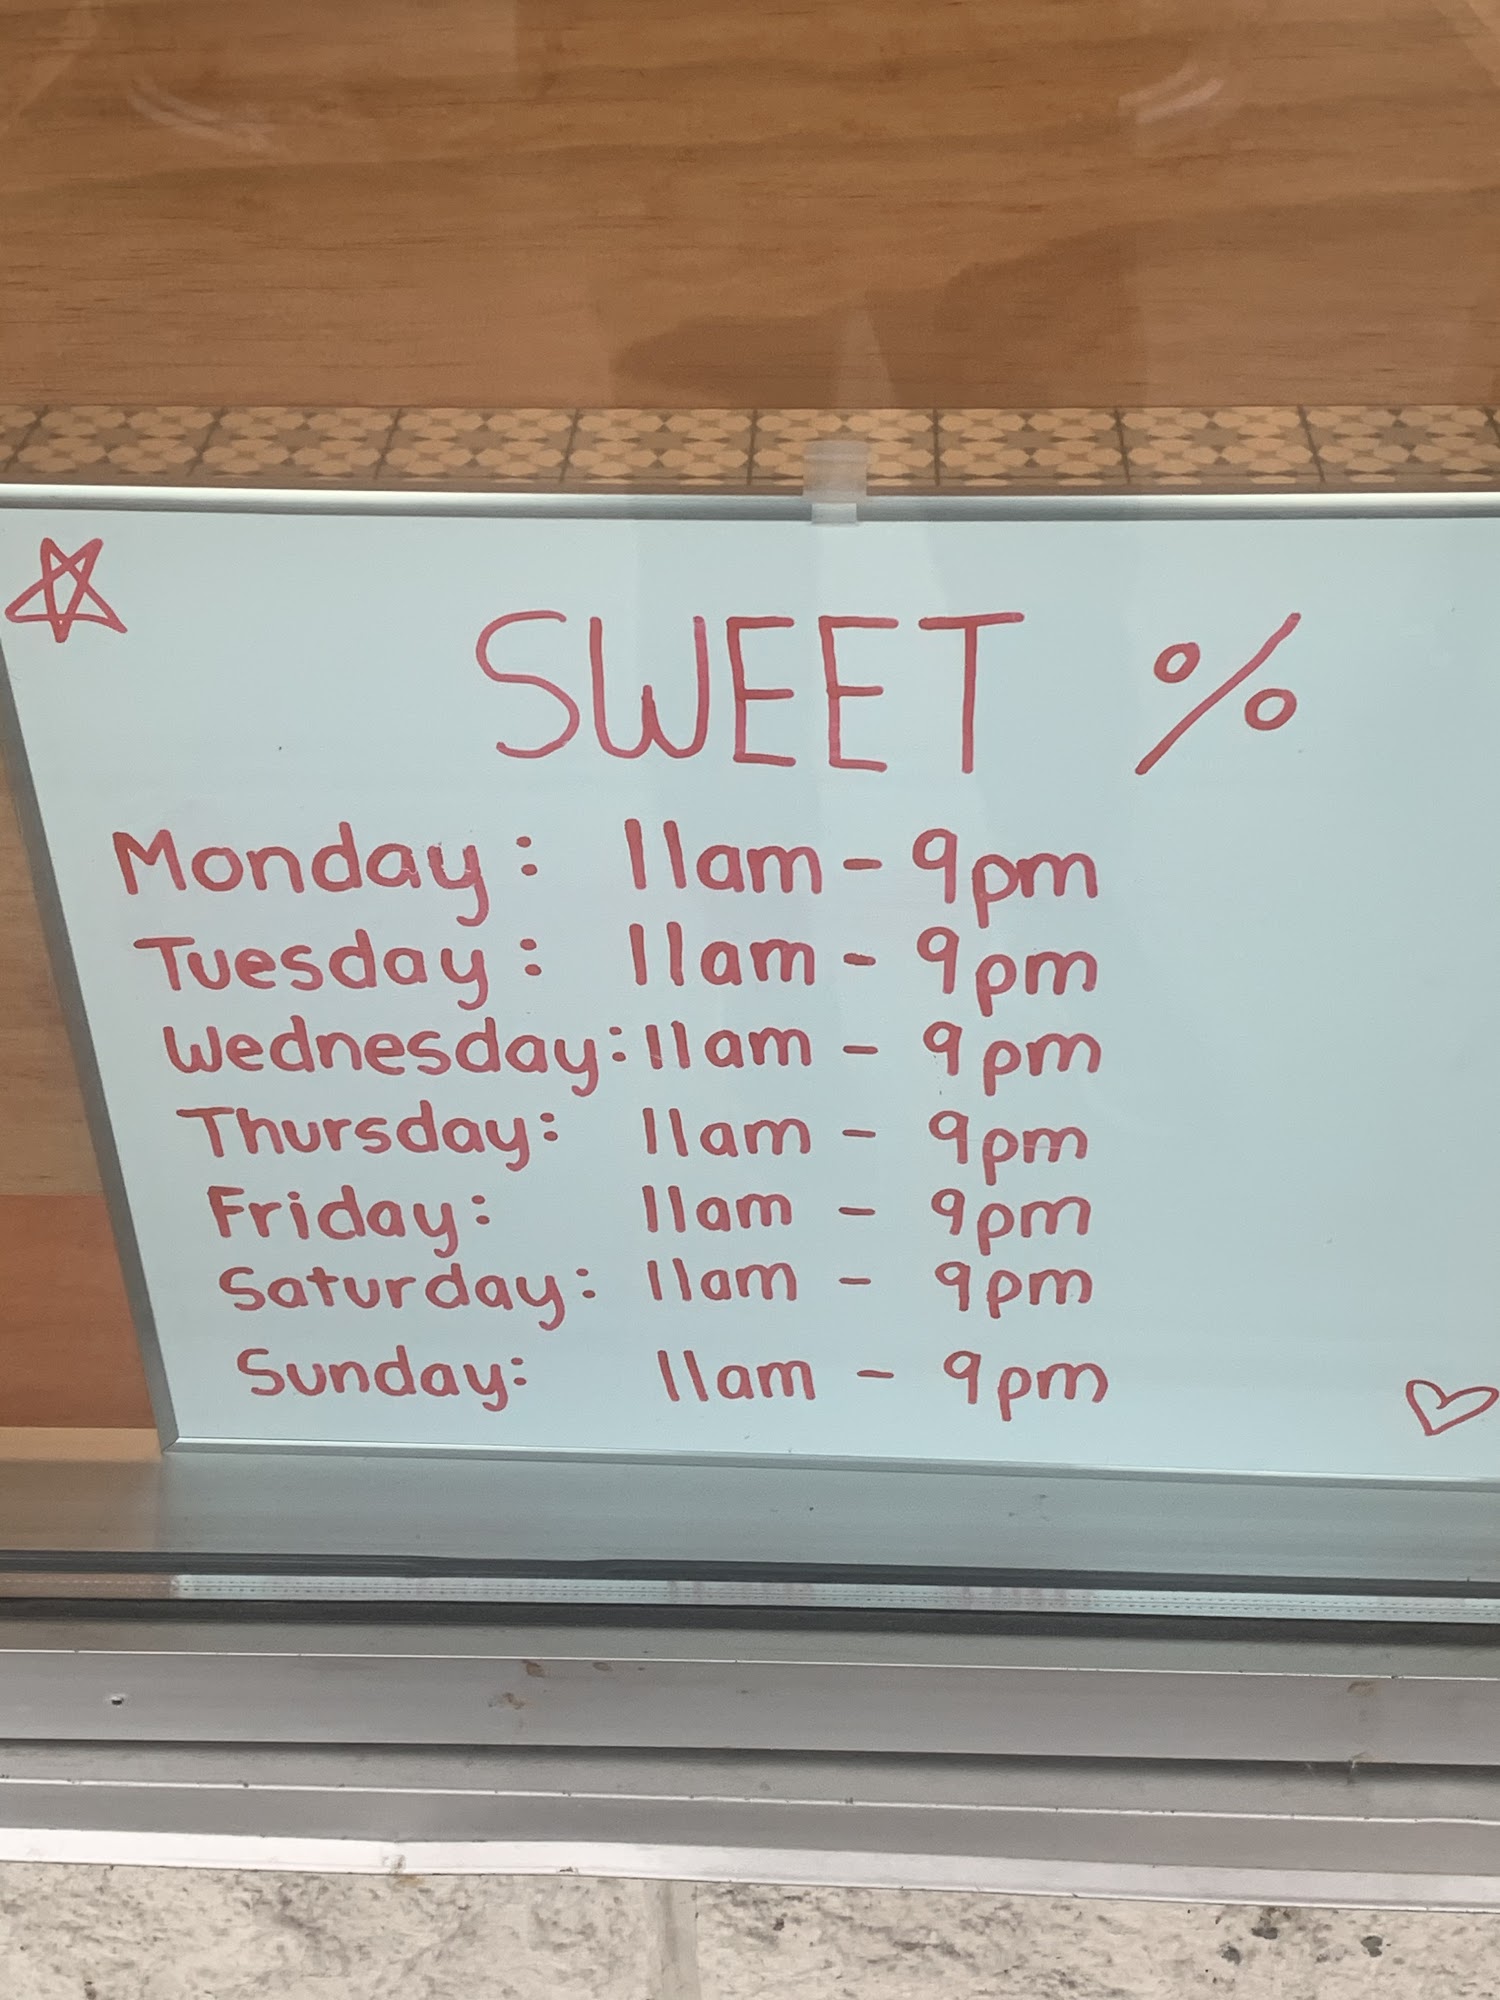 SWEET %
Monday: 11am - 9pm
Tuesday: 11am - 9pm
Wednesday: 11am - 9pm
Thursday: 11am - 9pm
Friday: 11am - 9pm
Saturday: 11am - 9pm
Sunday: 11am - 9pm